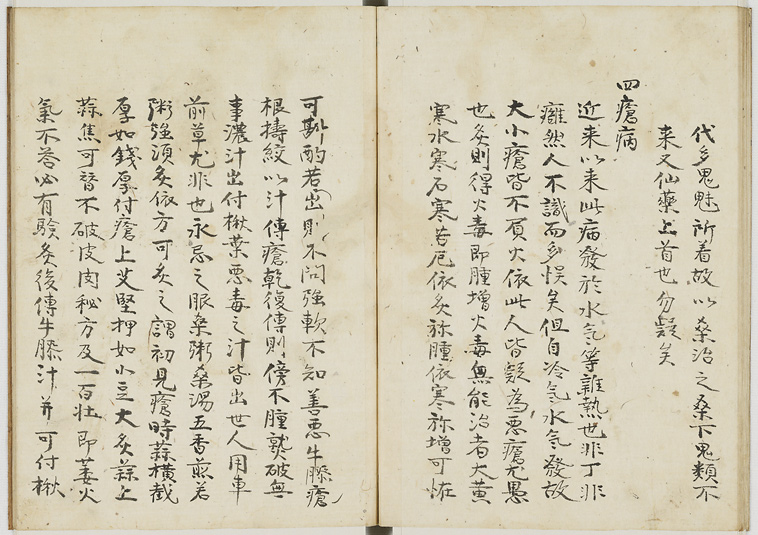 代多鬼魅所着故以桑治之桑下鬼類不
来又仙藥上首也勿疑矣
四瘡病
近来以来此病發於水氣等雜熱也非丁非
癰然人不識而多悮矣但自冷氣水氣發故
大小瘡皆不負火依此人皆疑為悪瘡尤愚
也灸則得火毒即腫増火毒無能治者大黄
寒水寒石寒苦厄依灸弥腫依寒弥増可恠
可斟酌若出則不問強軟不知善悪牛膝瘡
根擣絞以汁傳瘡乾復傳則傍不腫熟破無
事濃汁出付楸葉悪毒之汁皆出世人用車
前草尤非也永忌之服桑粥桑湯五香煎若
粥強須灸依方可灸之謂初見瘡時蒜横截
厚如錢厚付瘡上艾堅押如小豆大灸蒜上
蒜焦可替不破皮肉秘方及一百壮即萎火
氣不答必有験灸後傳牛膝汁并可付楸